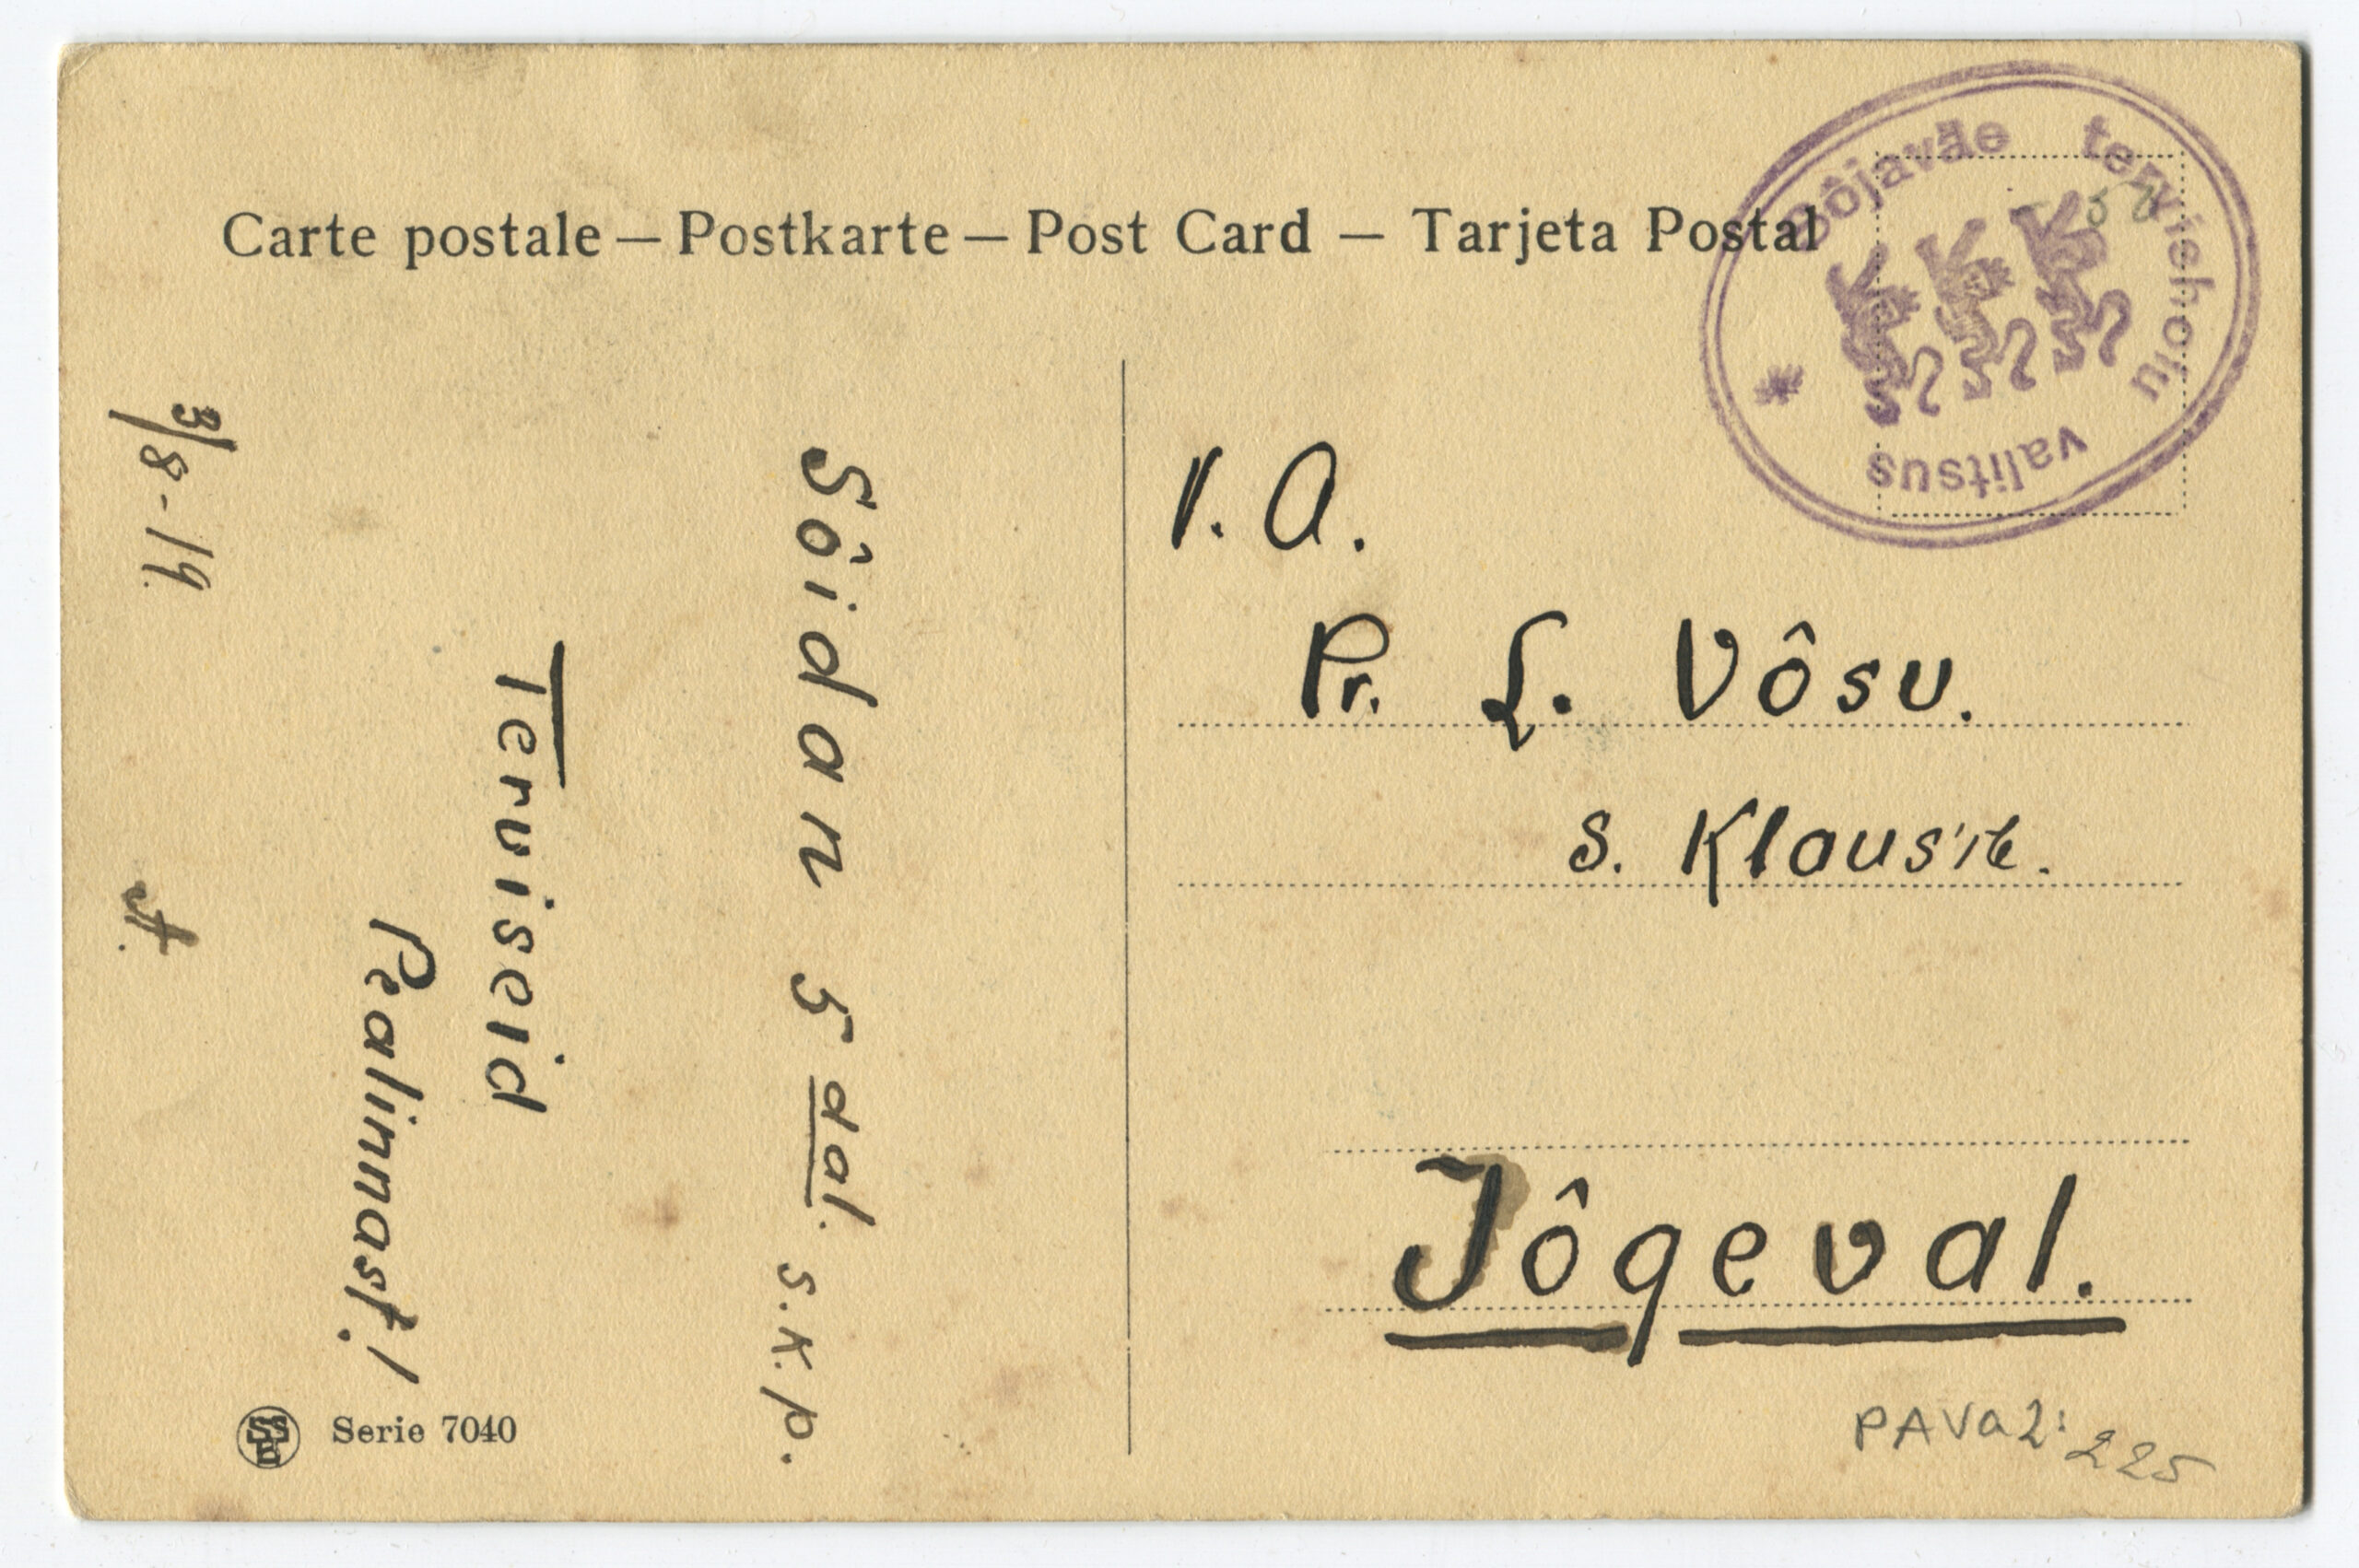 Carte postale — Postkarte — Post Card — Tarjeta Postal
Sõjaväe tervishoiu
valitsus
Sôidan 5 dal. s.k.p.
Terviseid
Pealinnast!
3/8-19.
A.
V. A.
Pr. L. Vôsu.
s. Klaus'ile.
Jôgeval.
SS
Serie 7040
PAVa2:225